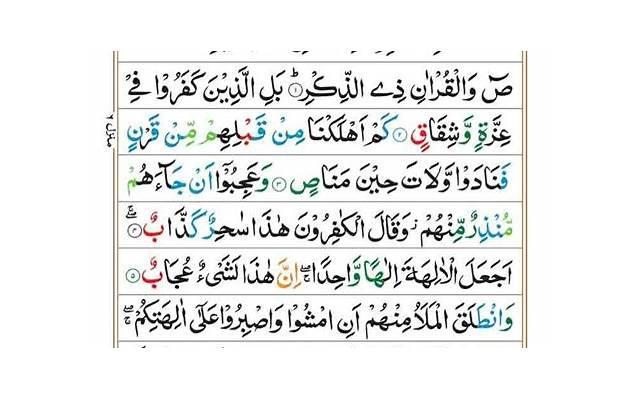 صٓ وَالْقُرْاٰنِ ذِی الذِّكْرِؕ۝۱ بَلِ الَّذِیْنَ كَفَرُوْا فِیْ
عِزَّةٍ وَّشِقَاقٍ۝۲ كَمْ اَهْلَكْنَا مِنْ قَبْلِهِمْ مِّنْ قَرْنٍ
فَنَادَوْا وَّلَاتَ حِیْنَ مَنَاصٍ۝۳ وَعَجِبُوْۤا اَنْ جَآءَهُمْ
مُّنْذِرٌ مِّنْهُمْ٘ وَقَالَ الْكٰفِرُوْنَ هٰذَا سٰحِرٌ كَذَّابٌۖۚ۝۴
اَجَعَلَ الْاٰلِهَةَ اِلٰهًا وَّاحِدًاۖۚ اِنَّ هٰذَا لَشَیْءٌ عُجَابٌ۝۵
وَانْطَلَقَ الْمَلَاُ مِنْهُمْ اَنِ امْشُوْا وَاصْبِرُوْا عَلٰۤی اٰلِهَتِكُمْۖۚ
منزل ۶